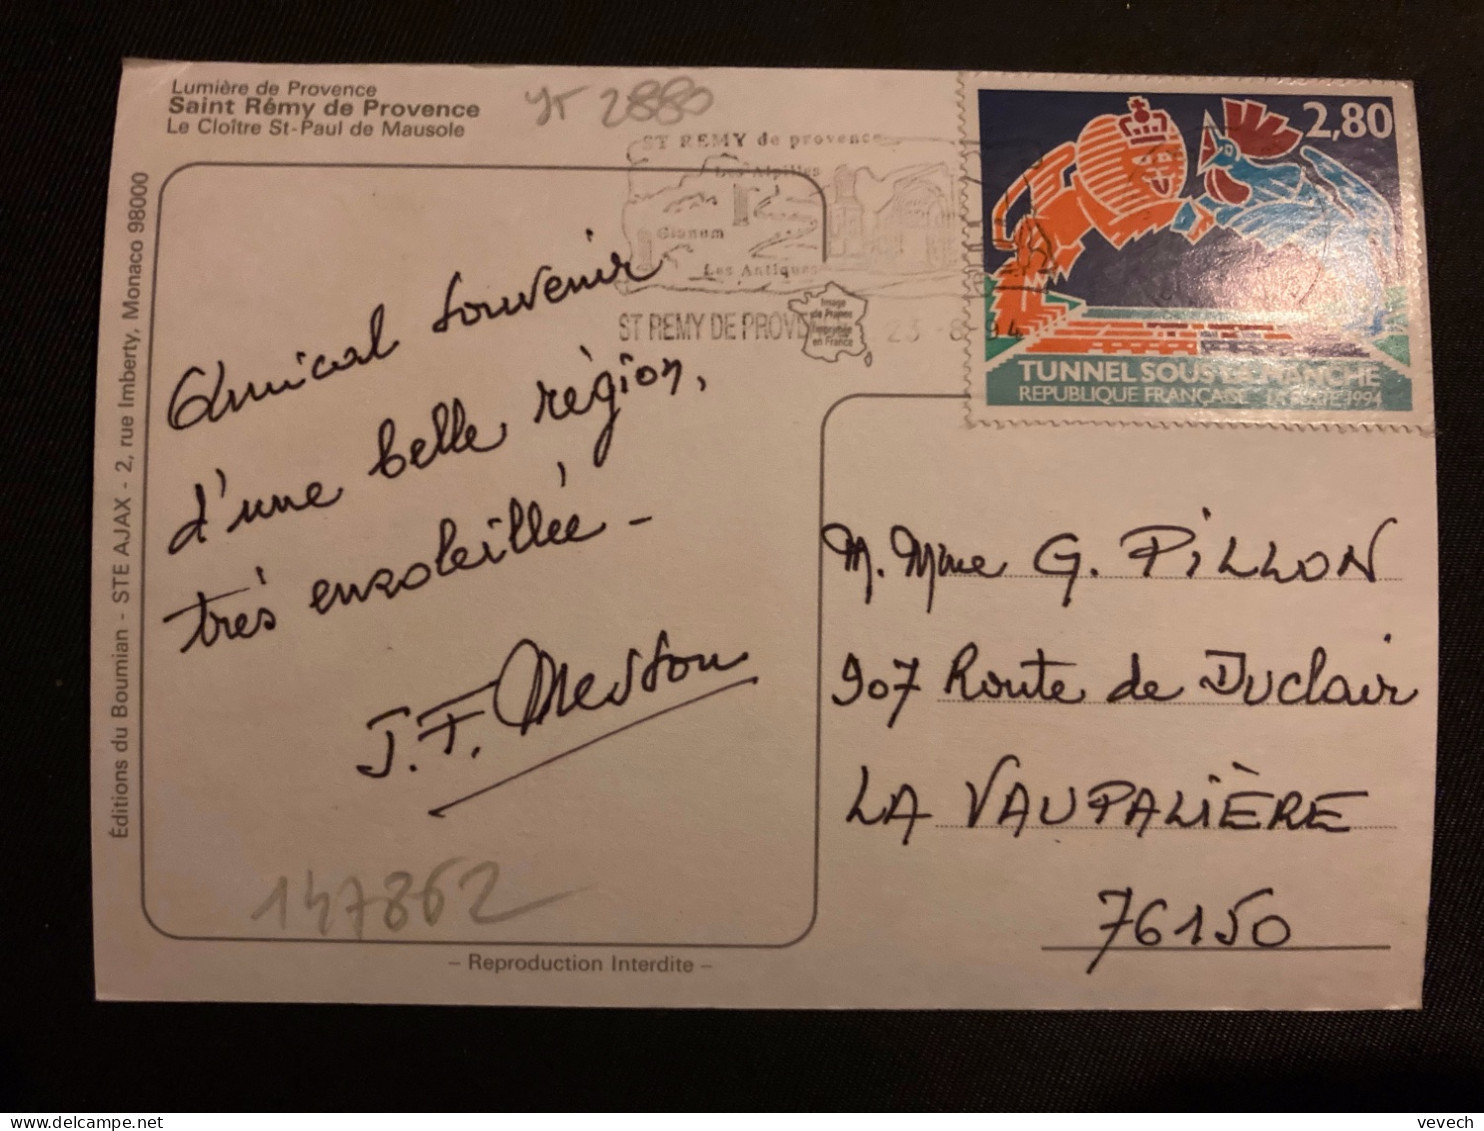 Lumière de Provence
Saint Rémy de Provence
Le Cloître St-Paul de Mausole
YT 2880
ST REMY de provence
Les Alpilles
Glanum
Les Antiques
ST REMY DE PROVE
23 -8 94
Image
de France
Imprimée
en France
2,80
TUNNEL SOUS LA MANCHE
REPUBLIQUE FRANÇAISE LA POSTE 1994
Éditions du Boumian - STE AJAX - 2, rue Imberty, Monaco 98000
Amical souvenir
d'une belle région,
très ensoleillée -
J.F. Meston
147862
- Reproduction Interdite -
M. Mme G. PILLON
907 Route de Duclair
LA VAUPALIÈRE
76150
vevech
delcampe.net